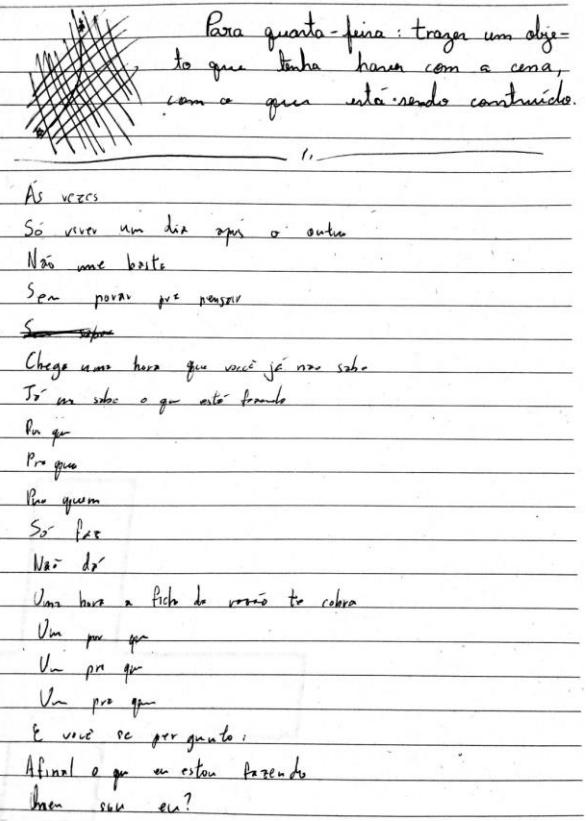 Para quarta-feira: trazer um obje-
to que tenha haver com a cena,
com o que está sendo construído.
Ás vezes
Só viver um dia após o outro
Não me basta
Sem parar pra pensar
Chega uma hora que você já não sabe
Já não sabe o que está fazendo
Por que
Pra que
Pra quem
Só faz
Não dá
Uma hora a ficha da razão te cobra
Um por que
Um pra que
Um pra quem
E você se pergunta:
Afinal o que eu estou fazendo
Quem sou eu?